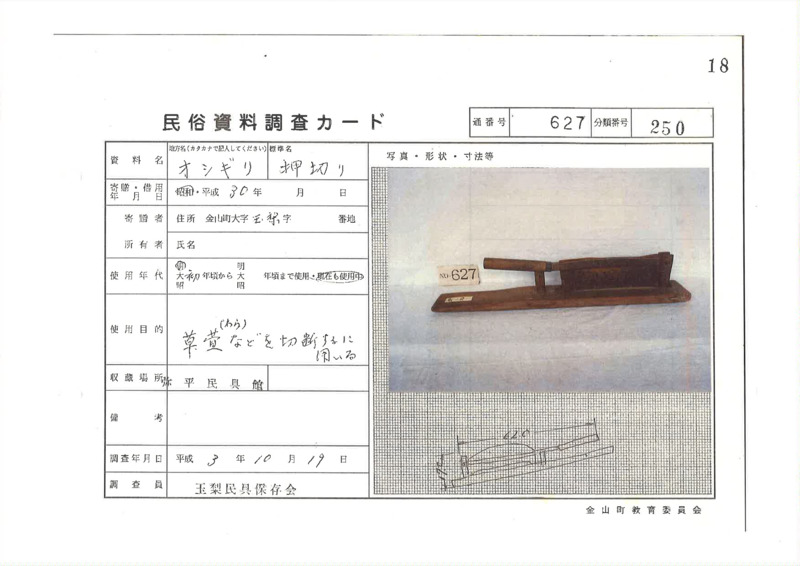 18
民俗資料調査カード
通番号 627 分類番号 250
資料名 地方名(カタカナで記入してください) オシギリ 標準名 押切り
写真・形状・寸法等
寄贈・借用年月日 昭和・平成 30年 月 日
寄贈者 住所 金山町大字玉梨字 番地
所有者 氏名
使用年代 明大昭 初年頃から 明大昭 年頃まで使用・現在も使用中
使用目的 草萱(わら)などを切断するに
用いる
収蔵場所 弥平民具館
備考
調査年月日 平成 3年 10月 19日
調査員 玉梨民具保存会
NO 627
120
金山町教育委員会